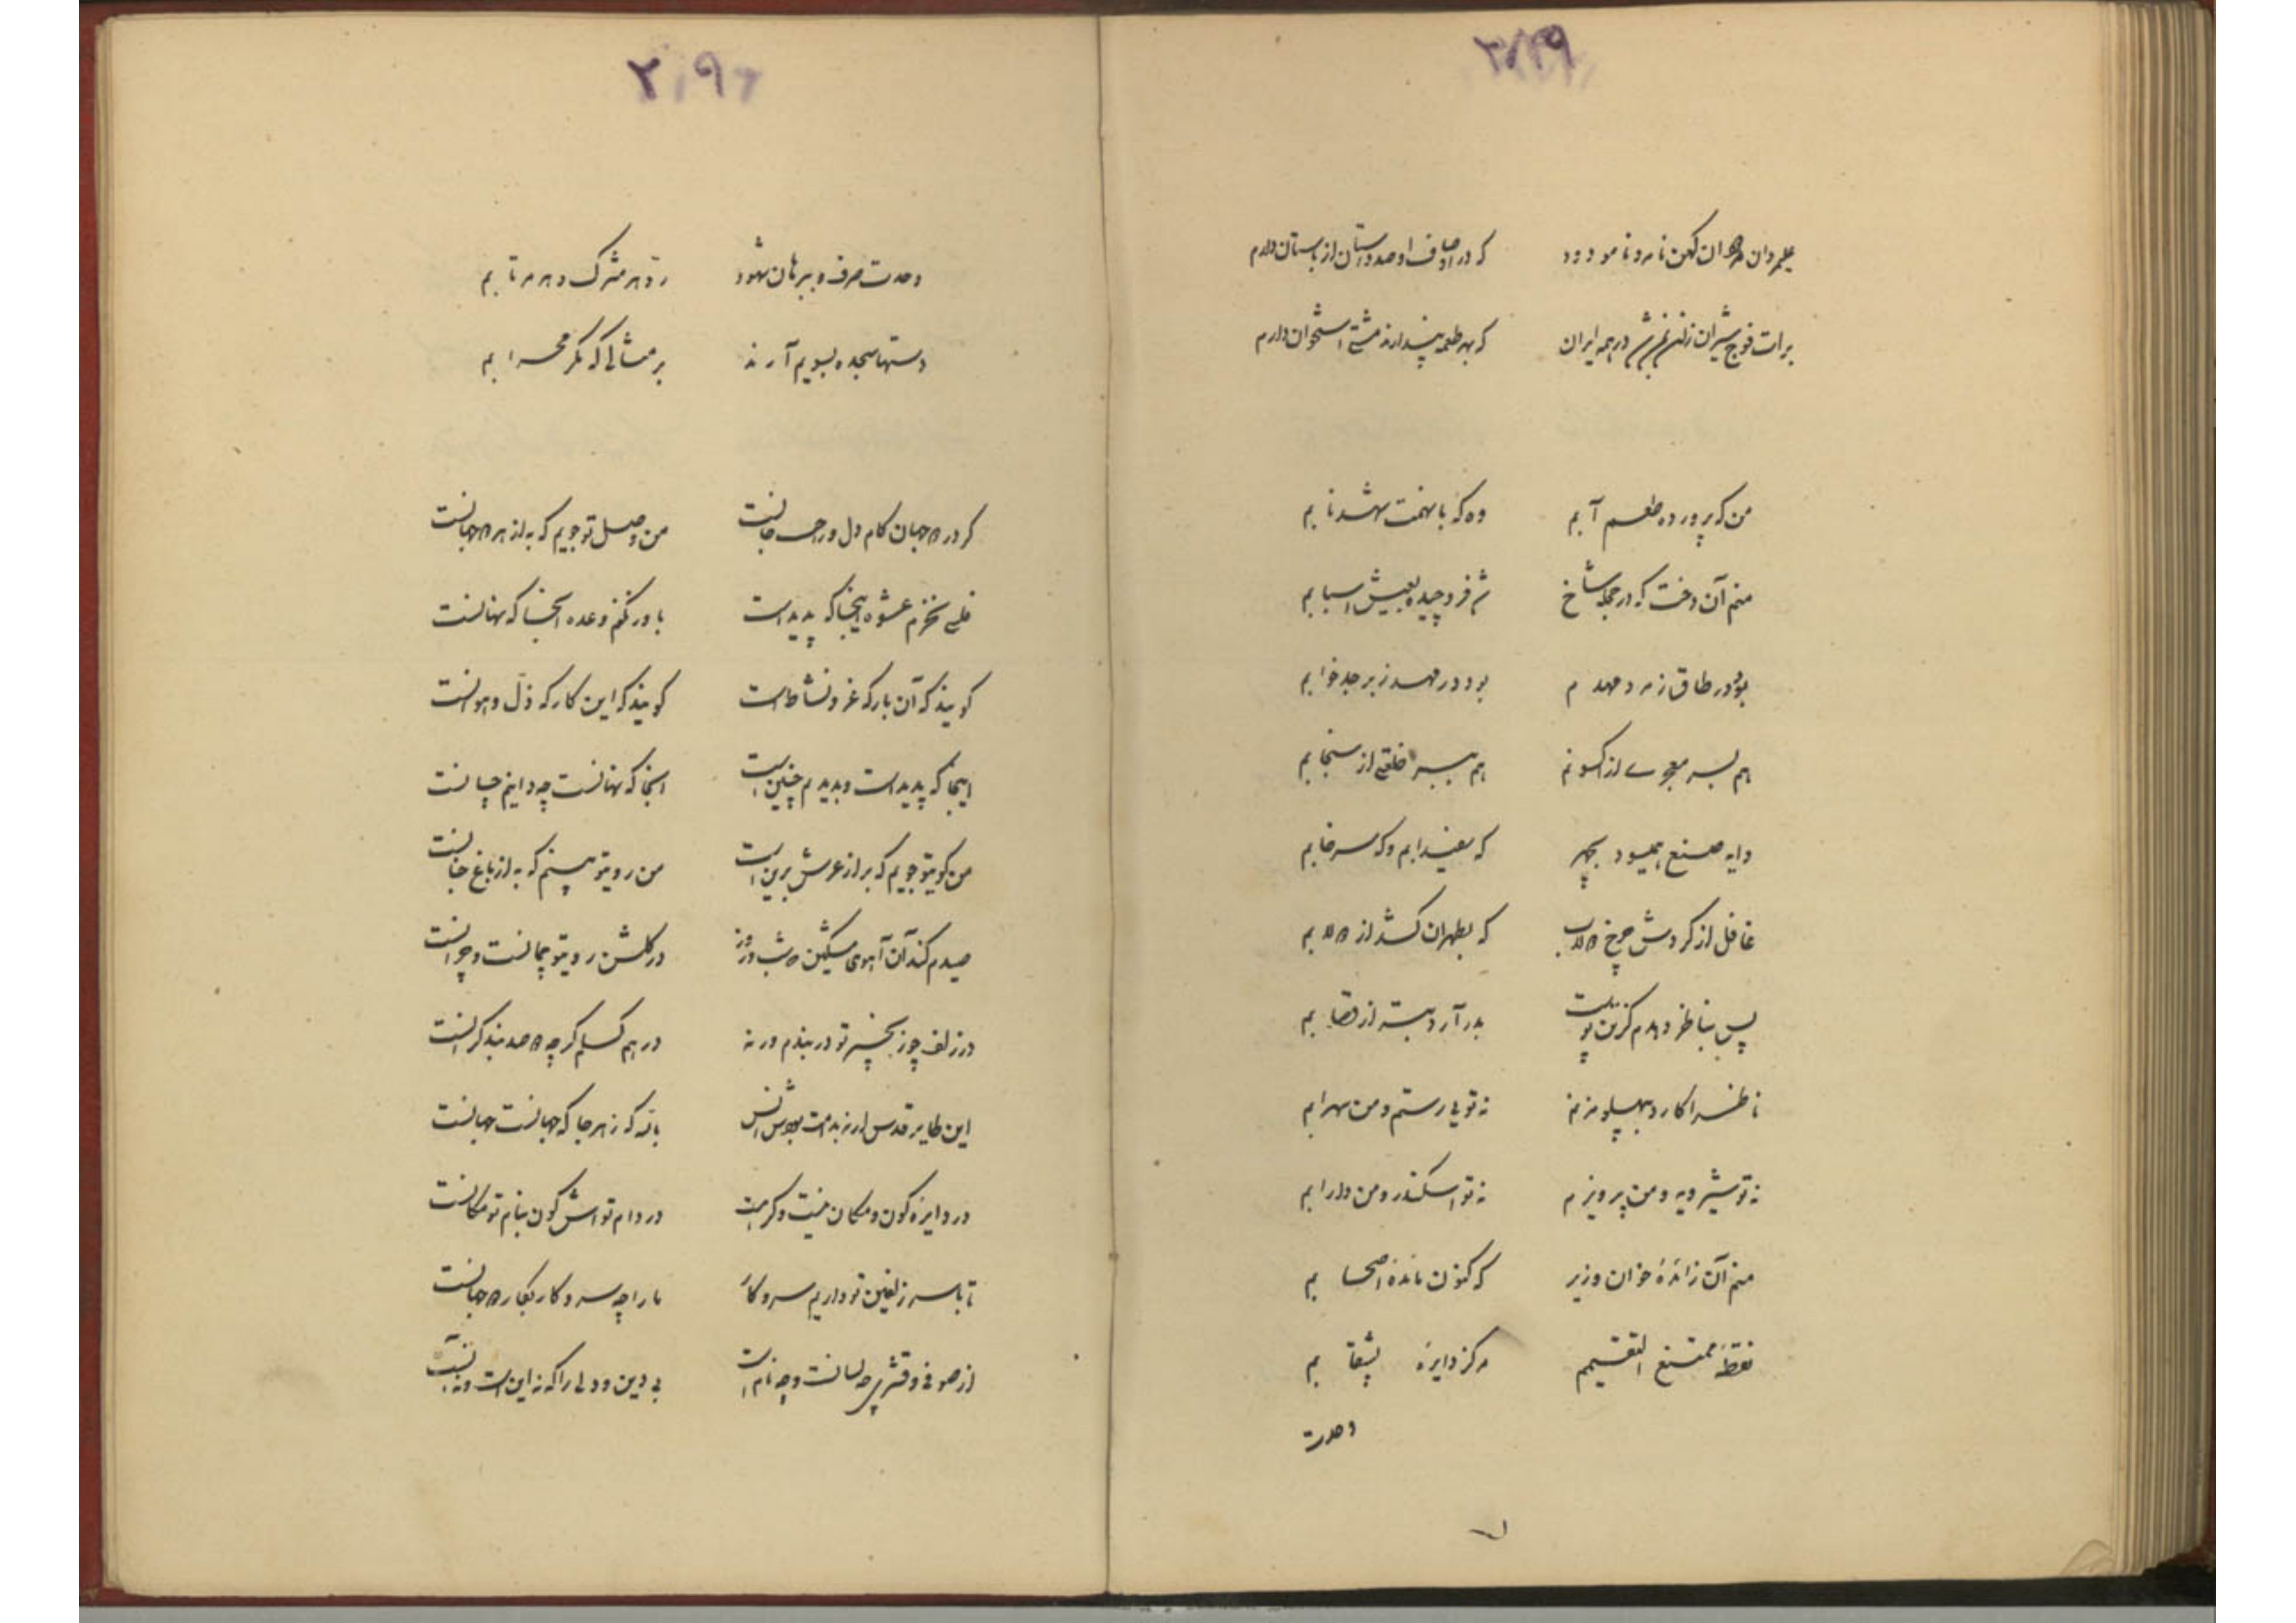 ۲۰۹
که در اوصاف او صد داستان از باستان دارم
برات فوج شیران در همه ایران که بهر طعمه پندارند مشتی استخوان دارم
من که پرورده طعم آبم وه که با نهمت شهد نابم
منم آن دخت که در حجله شاخ
بود در طاق زمرد مهدم بود در مهد زبرجد خوابم
هم بسر معجری از اکسونم هم ببر خلقتی از سنجابم
دایه صنع همیسود بچهر که سفیدابم و که سرخابم
غافل از گردش چرخ دولاب که بطهران کشد از دولابم
پس بناظر دهدم کزین پوست بدر آرد بتر از قصابم
ناظرا کارد بپهلو مزنم نه تویی رستم و من سهرابم
نه تو شیرویه و من پرویزم نه تو اسکندر و من دارابم
منم آن زائده خوان وزیر که کنون مانده اصحابم
نقطه ممتنع التقسیم مرکز دایره بشقابم
وحدت
۷
۲۰۹
وحدت صرف و ببرهان شهود
دستها سجده بسویم آرند بر مثالی که مگر محرابم
گر در دو جهان کام دل و راحت جانست من وصل تو جویم که به از هر دو جهانست
نخرم عشوه اینجا که پدید است باور نکنم وعده آنجا که نهانست
گویند که آن بار که عز و نشاط است گویند که این کار که ذل و هوانست
اینجا که پدید است و بدیدیم چنین است آنجا که نهانست چه دانیم چسانست
من کویتو جویم که بر از عرش برین است من رویتو بینم که به از باغ جنانست
صیدم کند آن آهوی مشکین که شب و روز در گلشن رویتو چمانست و چرانست
در زلف چو زنجیر تو در بندم ورنه در هم گسلم گرچه دو صد بند گرانست
این طایر قدس ار نه بدامت بودش انس بالله که ز هر جا که جهانست جهانست
در دایره کون و مکان نیست و گر هست در دام تواش کون بنام تو مکانست
تا با سر زلفین تو داریم سر و کار ما را چه سر و کار بکار دو جهانست
از صوفی و قشری چه لسانست و چه نام است بی دین و دلی را که نه این است و نه آنست